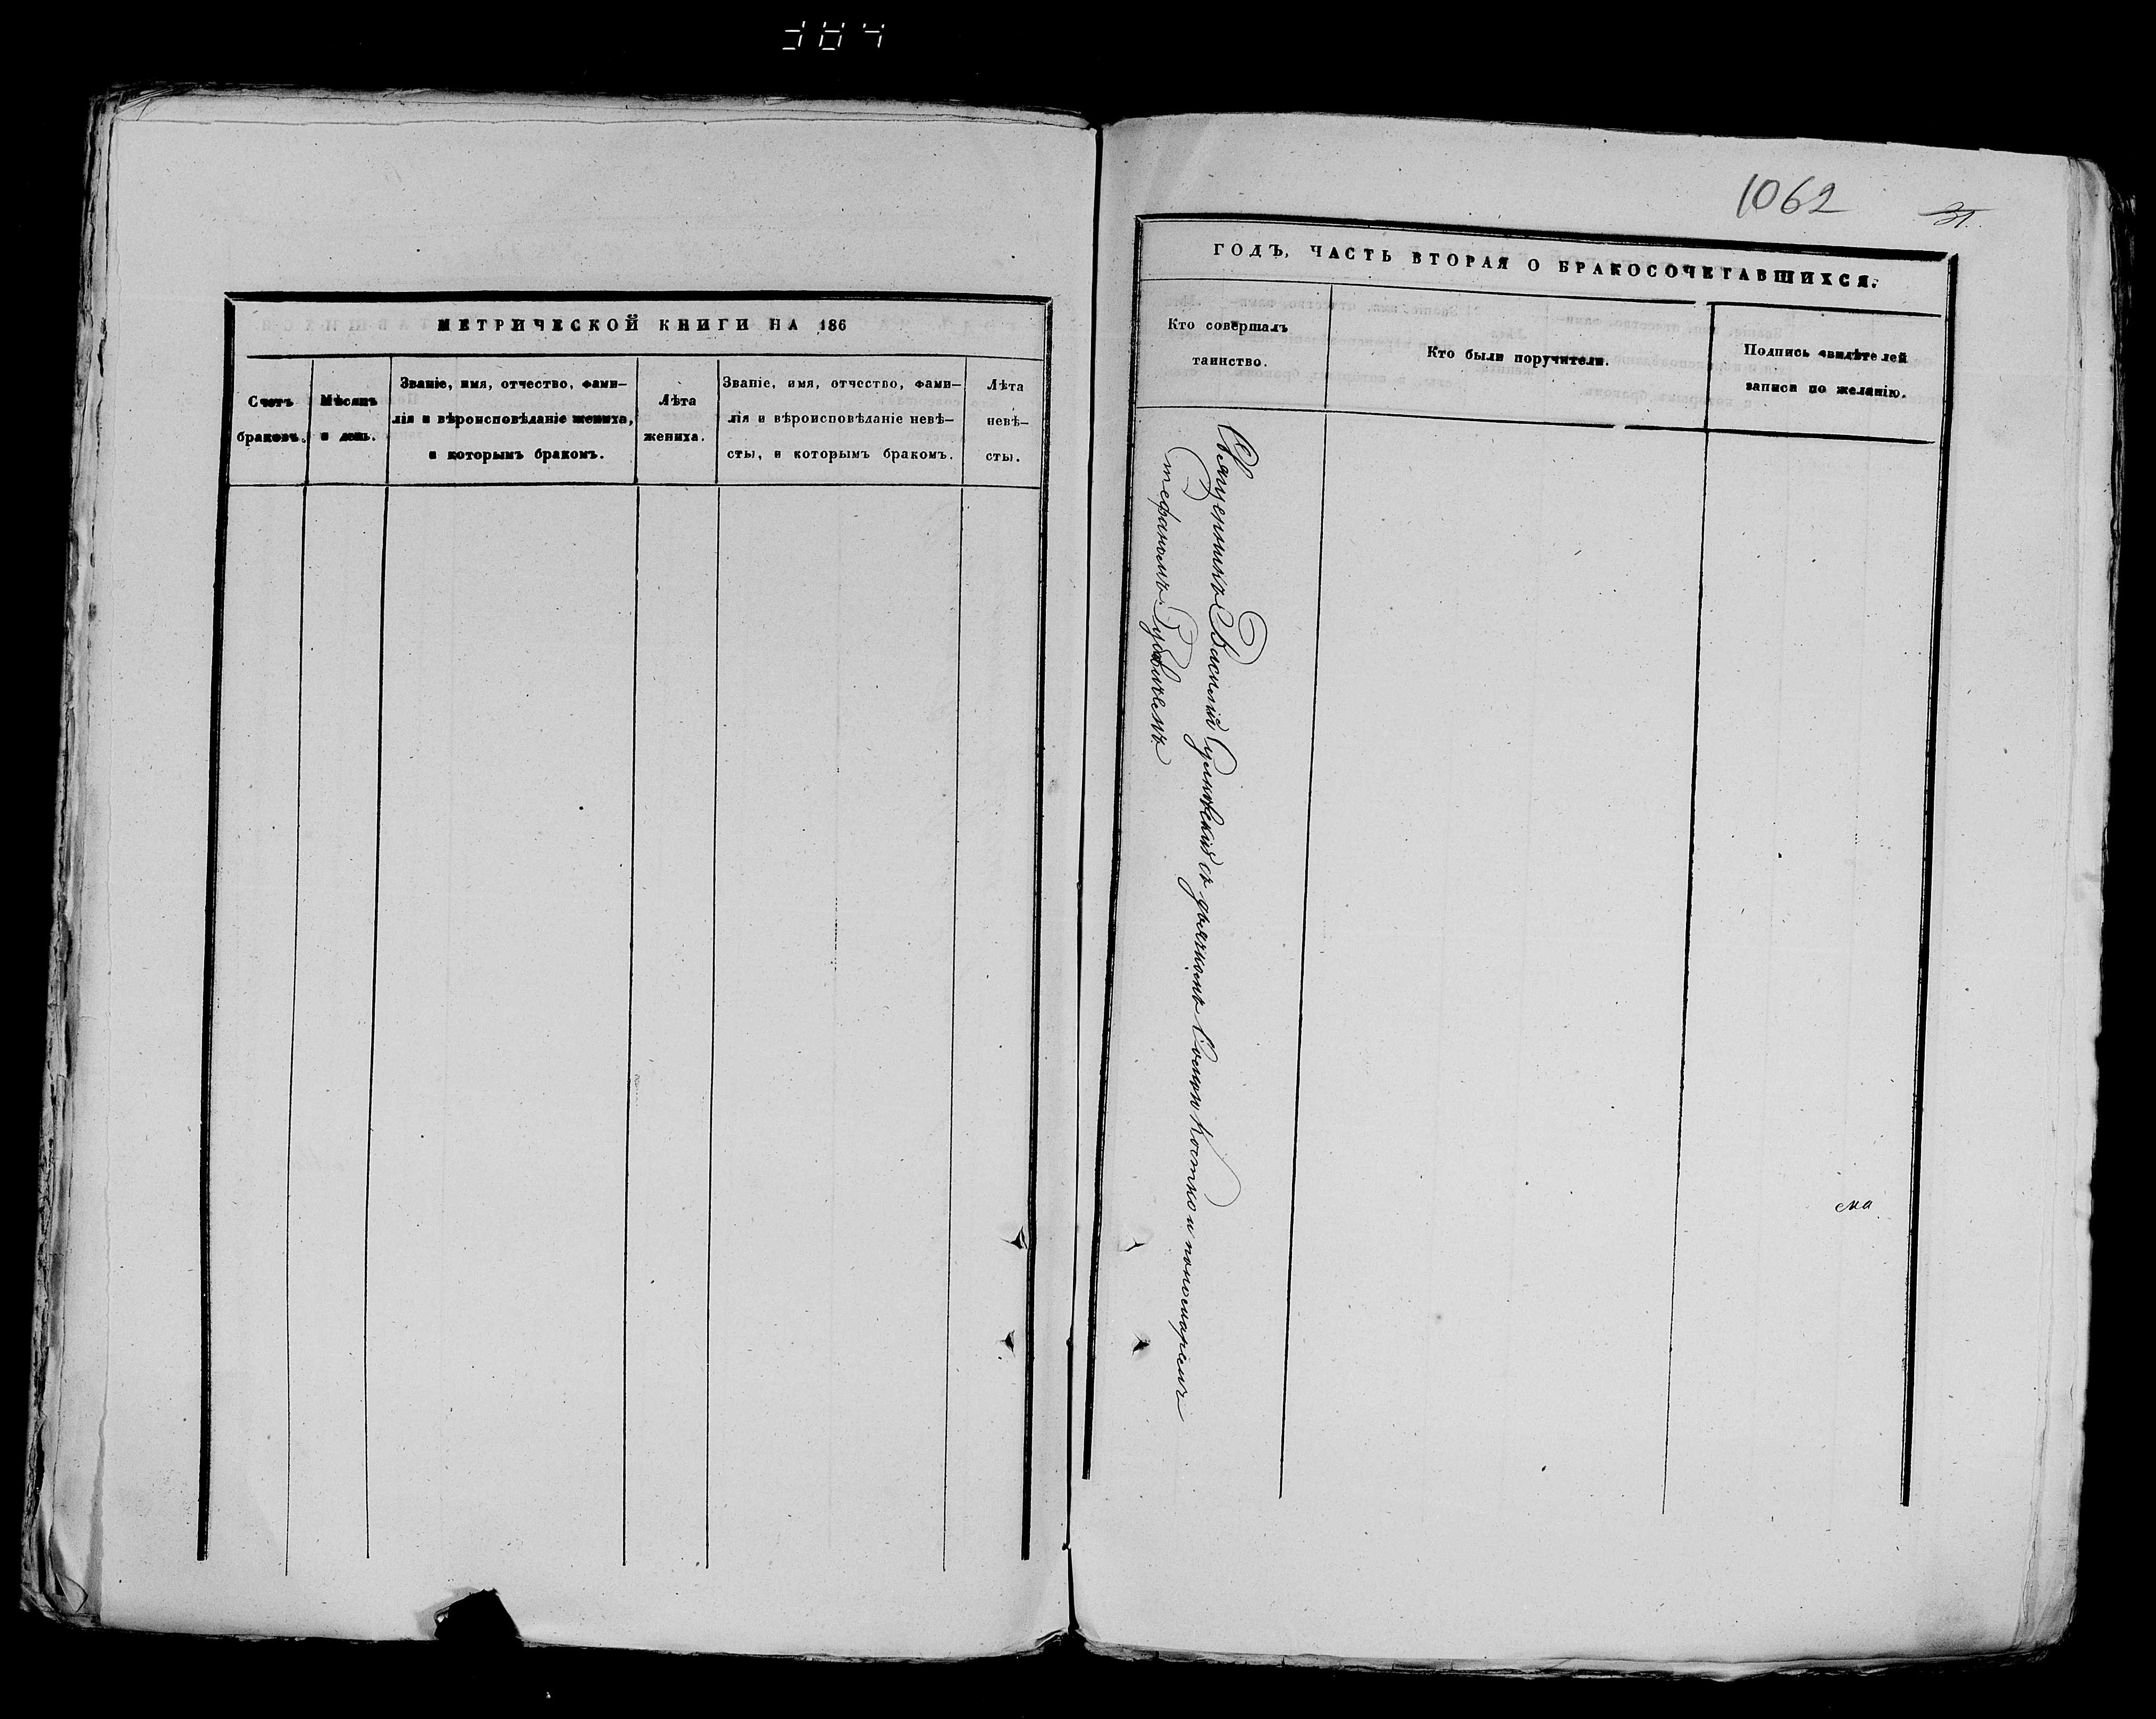 МЕТРИЧЕСКОЙ КНИГИ НА 186
Счетъ
браковъ.
Мѣсяцъ
и день.
Званіе, имя, отчество, фами–
лія и вѣроисповѣданіе жениха,
и которымъ бракомъ.
Лѣта
жениха.
Званіе, имя, отчество, фами–
лія и вѣроисповѣданіе невѣ–
сты, и которымъ бракомъ.
Лѣта
невѣ–
сты.
1062
31.
ГОДЪ, ЧАСТЬ ВТОРАЯ О БРАКОСОЧЕТАВШИХСЯ.
Кто совершалъ
таинство.
Кто были поручители.
Подпись свидѣтелей
записи по желанію.
Священникъ Василій съ дьячкомъ Костко и пономаремъ
Стефаномъ